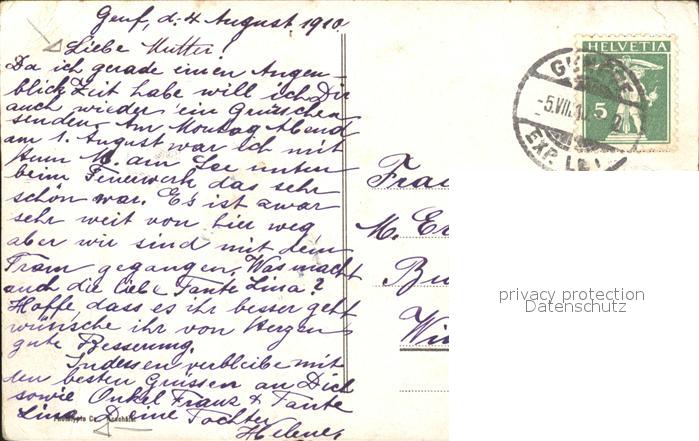 Genf, d. 4 August. 1910.
Liebe Mutter!
Da ich gerade einen Augen-
blick Zeit habe will ich Dir
auch wieder ein Grüsschen
senden. Am Montag Abend
am 1. August war ich mit
M. am See unten
beim Feuerwerk das sehr
schön war. Es ist zwar
sehr weit von hier weg
aber wir sind mit dem
Tram gegangen. Was macht
auch die liebe Tante Lina?
Hoffe, dass es ihr besser geht
wünsche ihr von Herzen
gute Besserung.
Indessen verbleibe mit
den besten Grüssen an Dich
sowie Onkel Franz & Tante
Lina Deine Tochter
Helene
HELVETIA
5
EXP. L
Frau
M. E
B
Win
privacy protection
Datenschutz